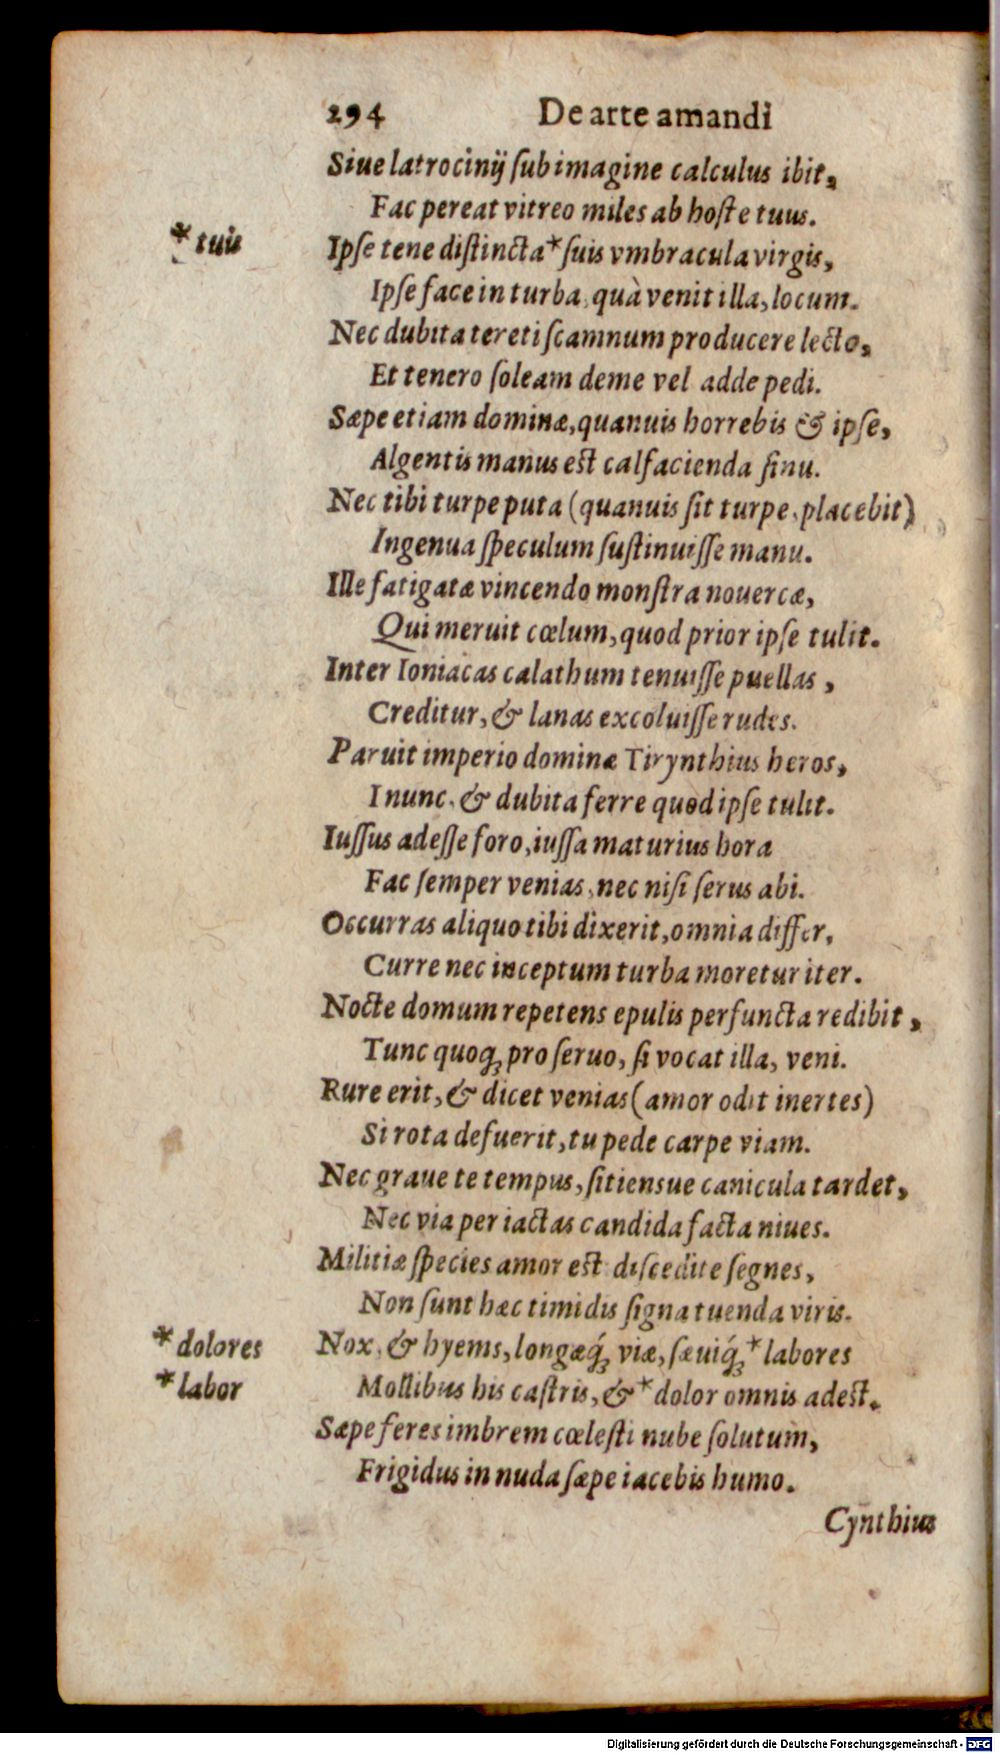 294 De arte amandi
Siue latrocinij ſub imagine calculus ibit,
Fac pereat vitreo miles ab hoſte tuus.
* tuis
Ipſe tene diſtincta * ſuis vmbracula virgis,
Ipſe face in turba, quà venit illa, locum.
Nec dubita tereti ſcamnum producere lecto,
Et tenero ſoleam deme vel adde pedi.
Sæpe etiam dominæ, quanuis horrebis & ipſe,
Algentis manus est calfacienda ſinu.
Nec tibi turpe puta (quanuis ſit turpe, placebit)
Ingenua ſpeculum ſuſtinuiſſe manu.
Ille fatigatæ vincendo monſtra nouercæ,
Qui meruit cœlum, quod prior ipſe tulit.
Inter Ioniacas calathum tenuiſſe puellas,
Creditur, & lanas excoluiſſe rudes.
Paruit imperio dominæ Tirynthius heros,
I nunc, & dubita ferre quod ipſe tulit.
Iuſſus adeſſe foro, iuſſa maturius hora
Fac ſemper venias, nec niſi ſerus abi.
Occurras aliquo tibi dixerit, omnia differ,
Curre nec inceptum turba moretur iter.
Nocte domum repetens epulis perfuncta redibit,
Tunc quoq; pro ſeruo, ſi vocat illa, veni.
Rure erit, & dicet venias (amor odit inertes)
Si rota defuerit, tu pede carpe viam.
Nec graue te tempus, ſitiensue canicula tardet,
Nec via per iactas candida facta niues.
Militiæ ſpecies amor est diſcedite ſegnes,
Non ſunt hæc timidis ſigna tuenda viris.
* dolores
Nox, & hyems, longæq́; viæ, ſæuiq́; * labores
* labor
Mollibus his caſtris, & * dolor omnis adest.
Sæpe feres imbrem cœleſti nube ſolutum,
Frigidus in nuda ſæpe iacebis humo.
Cynthius
Digitalisierung gefördert durch die Deutsche Forschungsgemeinschaft - DFG